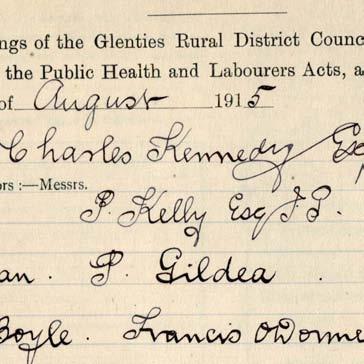 ngs of the Glenties Rural District Counc
the Public Health and Labourers Acts, a
of August 1915
Charles Kennedy Esq
ors :—Messrs.
P. Kelly Esq J.P.
an. P. Gildea.
Boyle. Francis O'Donne